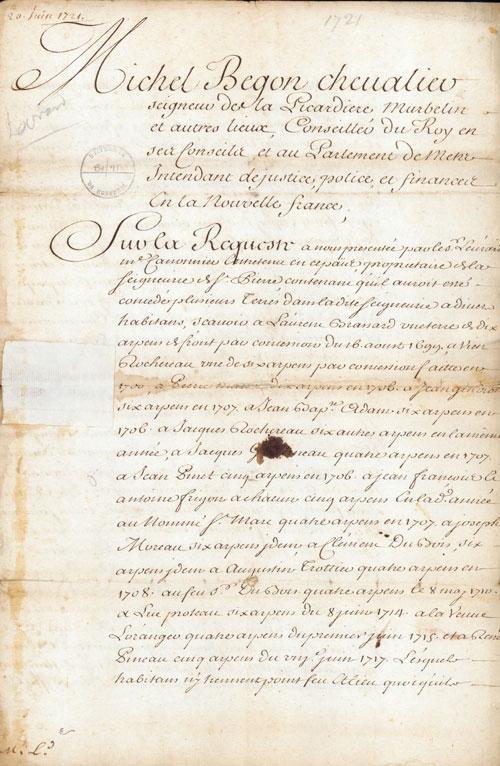 20 Juin 1721.
1721
Michel Begon chevalier
seigneur de la Picardiere Murbelin
et autres lieux, Conseiller du Roy en
ses Conseils, et au Parlement de Metz
Intendant de justice, police, et finances
En la Nouvelle france,
Sur la Requeste a nous presentée par le Sr.
me Canonnier Entretenu en ce païs, proprietaire de la
seigneurie de St. Pierre contenant qu'il auroit
concedé plusieurs Terres dans lad. seigneurie a divers
habitans, scavoir a Laurent une terre de dix
arpens de front par concession du 16 aoust 1699, a
Rochereau une de six arpens par concession faitte en
170 , a Pierre dix arpens en 1706. a Jean
six arpens en 1707. a Jean Bapte. Adam six arpens en
1706. a Jacques Rochereau six autres arpens en la mesme
année, a Jacques quatre arpens en 1707
a Jean Pinet cinq arpens en 1706. a jean francois Et
antoine frigon a chacun cinq arpens En lad. année
au Nommé St. Marc quatre arpens en 1707. a joseph
Moreau six arpens jdem a Clement Dubois, six
arpens jdem a Augustin Trottier quatre arpens en
1708. au feu Sr. Dubois quatre arpens le 8 may 1710.
a Luc proteau six arpens du 8 juin 1714. a la Veuve
Loranger quatre arpens du premier Juin 1715. et a René
Pineau cinq arpens du juin 1717. Lesquels
habitans n'y tiennent point feu Et lieu quoi qu'ils